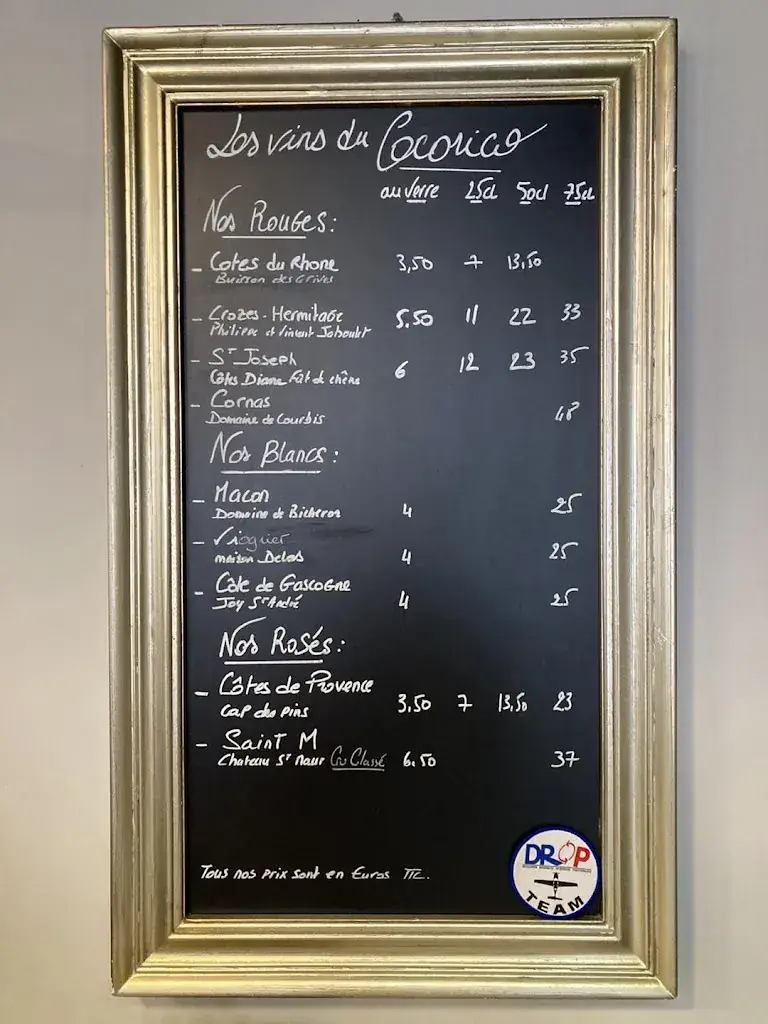 Les vins du Cocorico
au verre 25cl 50cl 75cl
Nos Rouges:
- Cotes du Rhone 3,50 7 13,50
Buisson des Grives
- Crozes-Hermitage 5.50 11 22 33
Philippe et Vincent Jaboulet
- St Joseph 6 12 23 35
Côtes Diane Fût de chêne
- Cornas 48
Domaine de Courbis
Nos Blancs:
- Macon 4 25
Domaine de Bicheron
- Viognier 4 25
maison Delas
- Côte de Gascogne 4 25
Joy St André
Nos Rosés:
- Côtes de Provence 3,50 7 13,50 23
Cap des pins
- Saint M
Chateau St Maur Cru Classé 6.50 37
Tous nos prix sont en Euros TTC.
DROP
TEAM